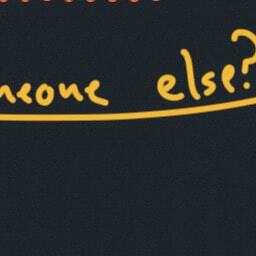 meone else?